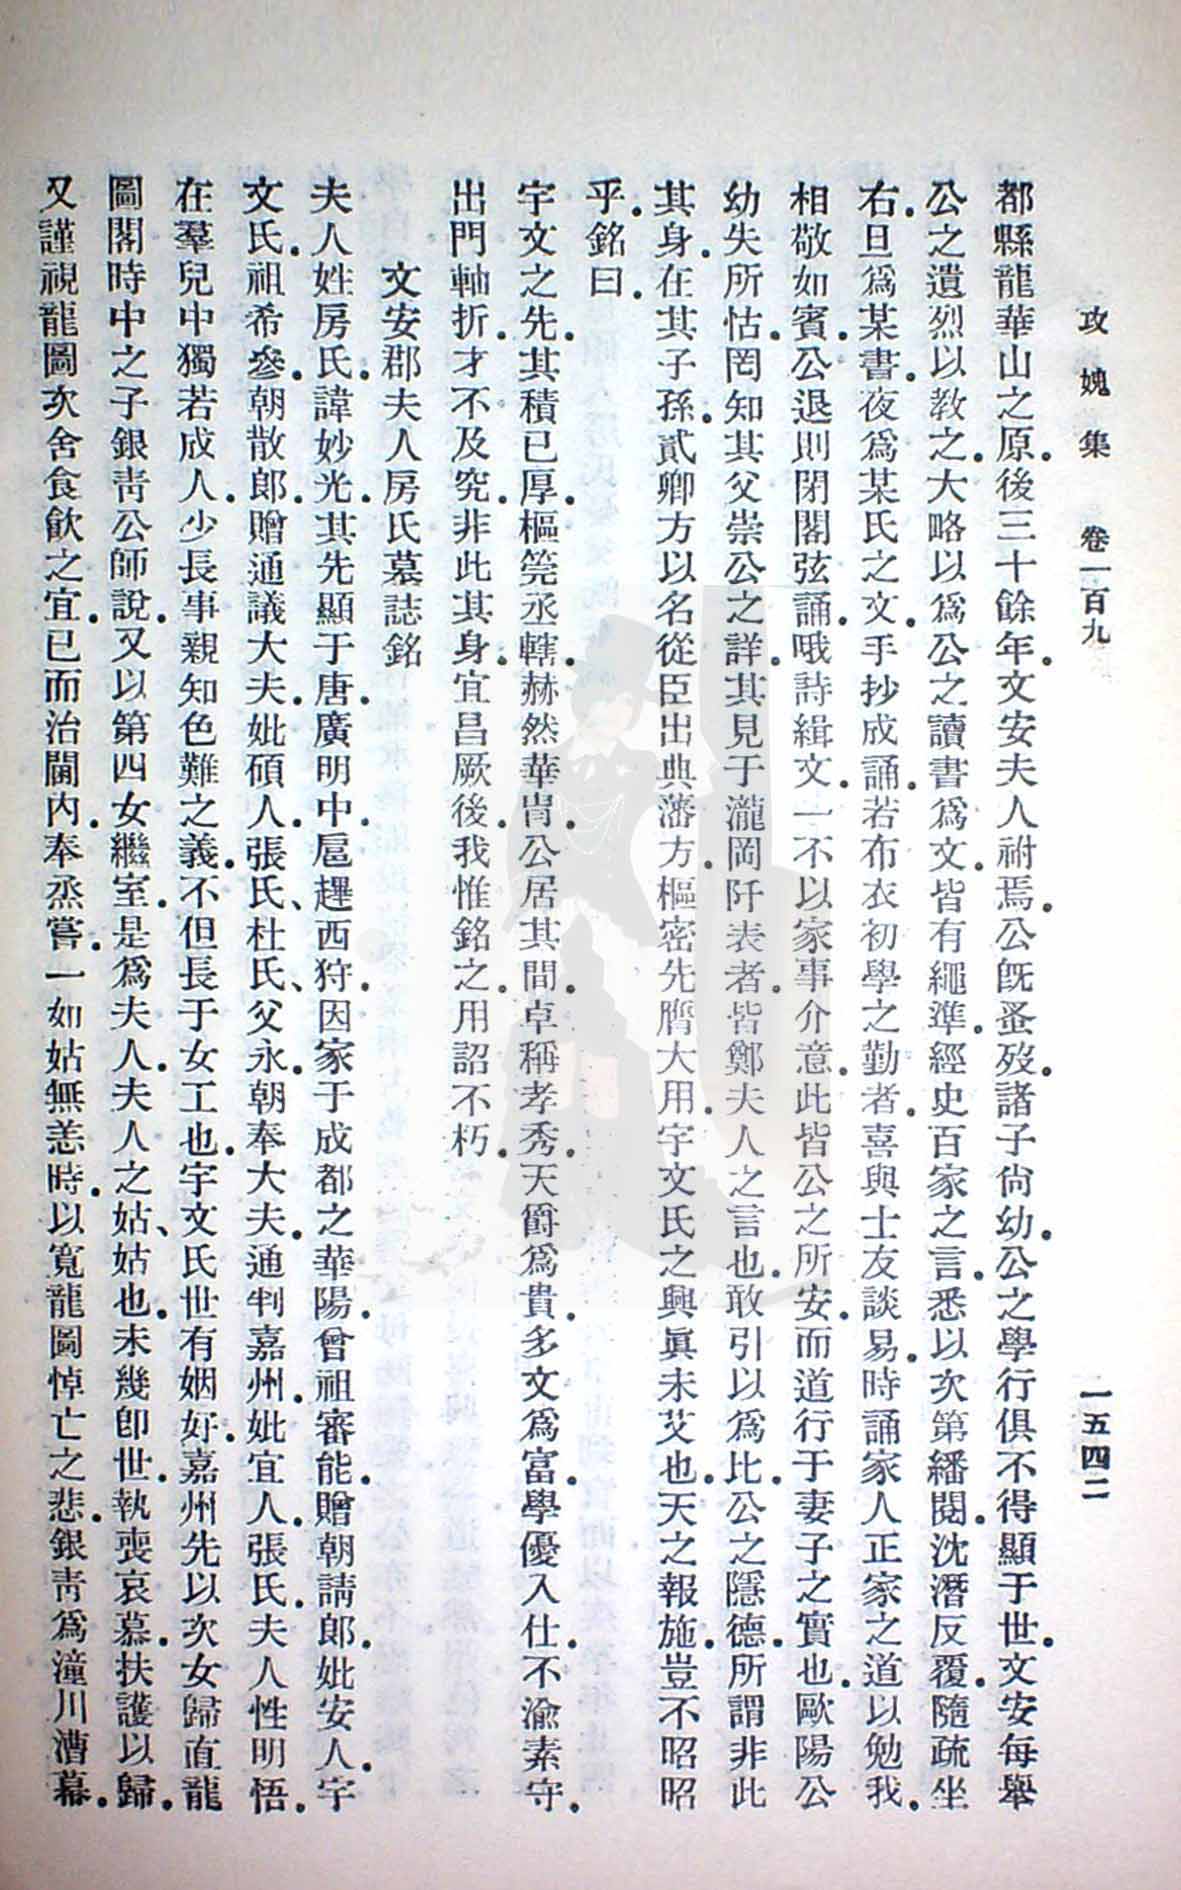 攻媿集　卷一百九　一五四二
都縣龍華山之原．後三十餘年．文安夫人祔焉．公旣蚤歿．諸子尙幼．公之學行俱不得顯于世．文安每舉
公之遺烈以教之．大略以爲公之讀書爲文．皆有繩準．經史百家之言．悉以次第繙閱．沈潛反覆．隨疏坐
右．旦爲某書．夜爲某氏之文．手抄成誦．若布衣初學之勤者．喜與士友談易．時誦家人正家之道以勉我．
相敬如賓．公退則閉閣弦誦．哦詩緝文．一不以家事介意．此皆公之所安．而道行于妻子之實也．歐陽公
幼失所怙．罔知其父崇公之詳．其見于瀧岡阡表者．皆鄭夫人之言也．敢引以爲比．公之隱德．所謂非此
其身．在其子孫．貳卿方以名從臣出典藩方．樞密先膺大用．宇文氏之興．眞未艾也．天之報施．豈不昭昭
乎．銘曰．
宇文之先．其積已厚．樞筦丞轄．赫然華冑．公居其間．卓稱孝秀．天爵爲貴．多文爲富．學優入仕．不渝素守．
出門軸折．才不及究．非此其身．宜昌厥後．我惟銘之．用詔不朽．
文安郡夫人房氏墓誌銘
夫人姓房氏．諱妙光．其先顯于唐．廣明中．扈趯西狩．因家于成都之華陽．曾祖審能．贈朝請郎．妣安人．宇
文氏．祖希參．朝散郎．贈通議大夫．妣碩人．張氏、杜氏、父永．朝奉大夫．通判嘉州．妣宜人．張氏．夫人性明悟．
在羣兒中獨若成人．少長事親．知色難之義．不但長于女工也．宇文氏世有姻好．嘉州先以次女歸直龍
圖閣時中之子銀靑公師說．又以第四女繼室．是爲夫人．夫人之姑、姑也．未幾卽世．執喪哀慕．扶護以歸．
又謹視龍圖次舍食飮之宜．已而治閫內．奉烝嘗．一如姑無恙時．以寬龍圖悼亡之悲．銀靑爲潼川漕幕．